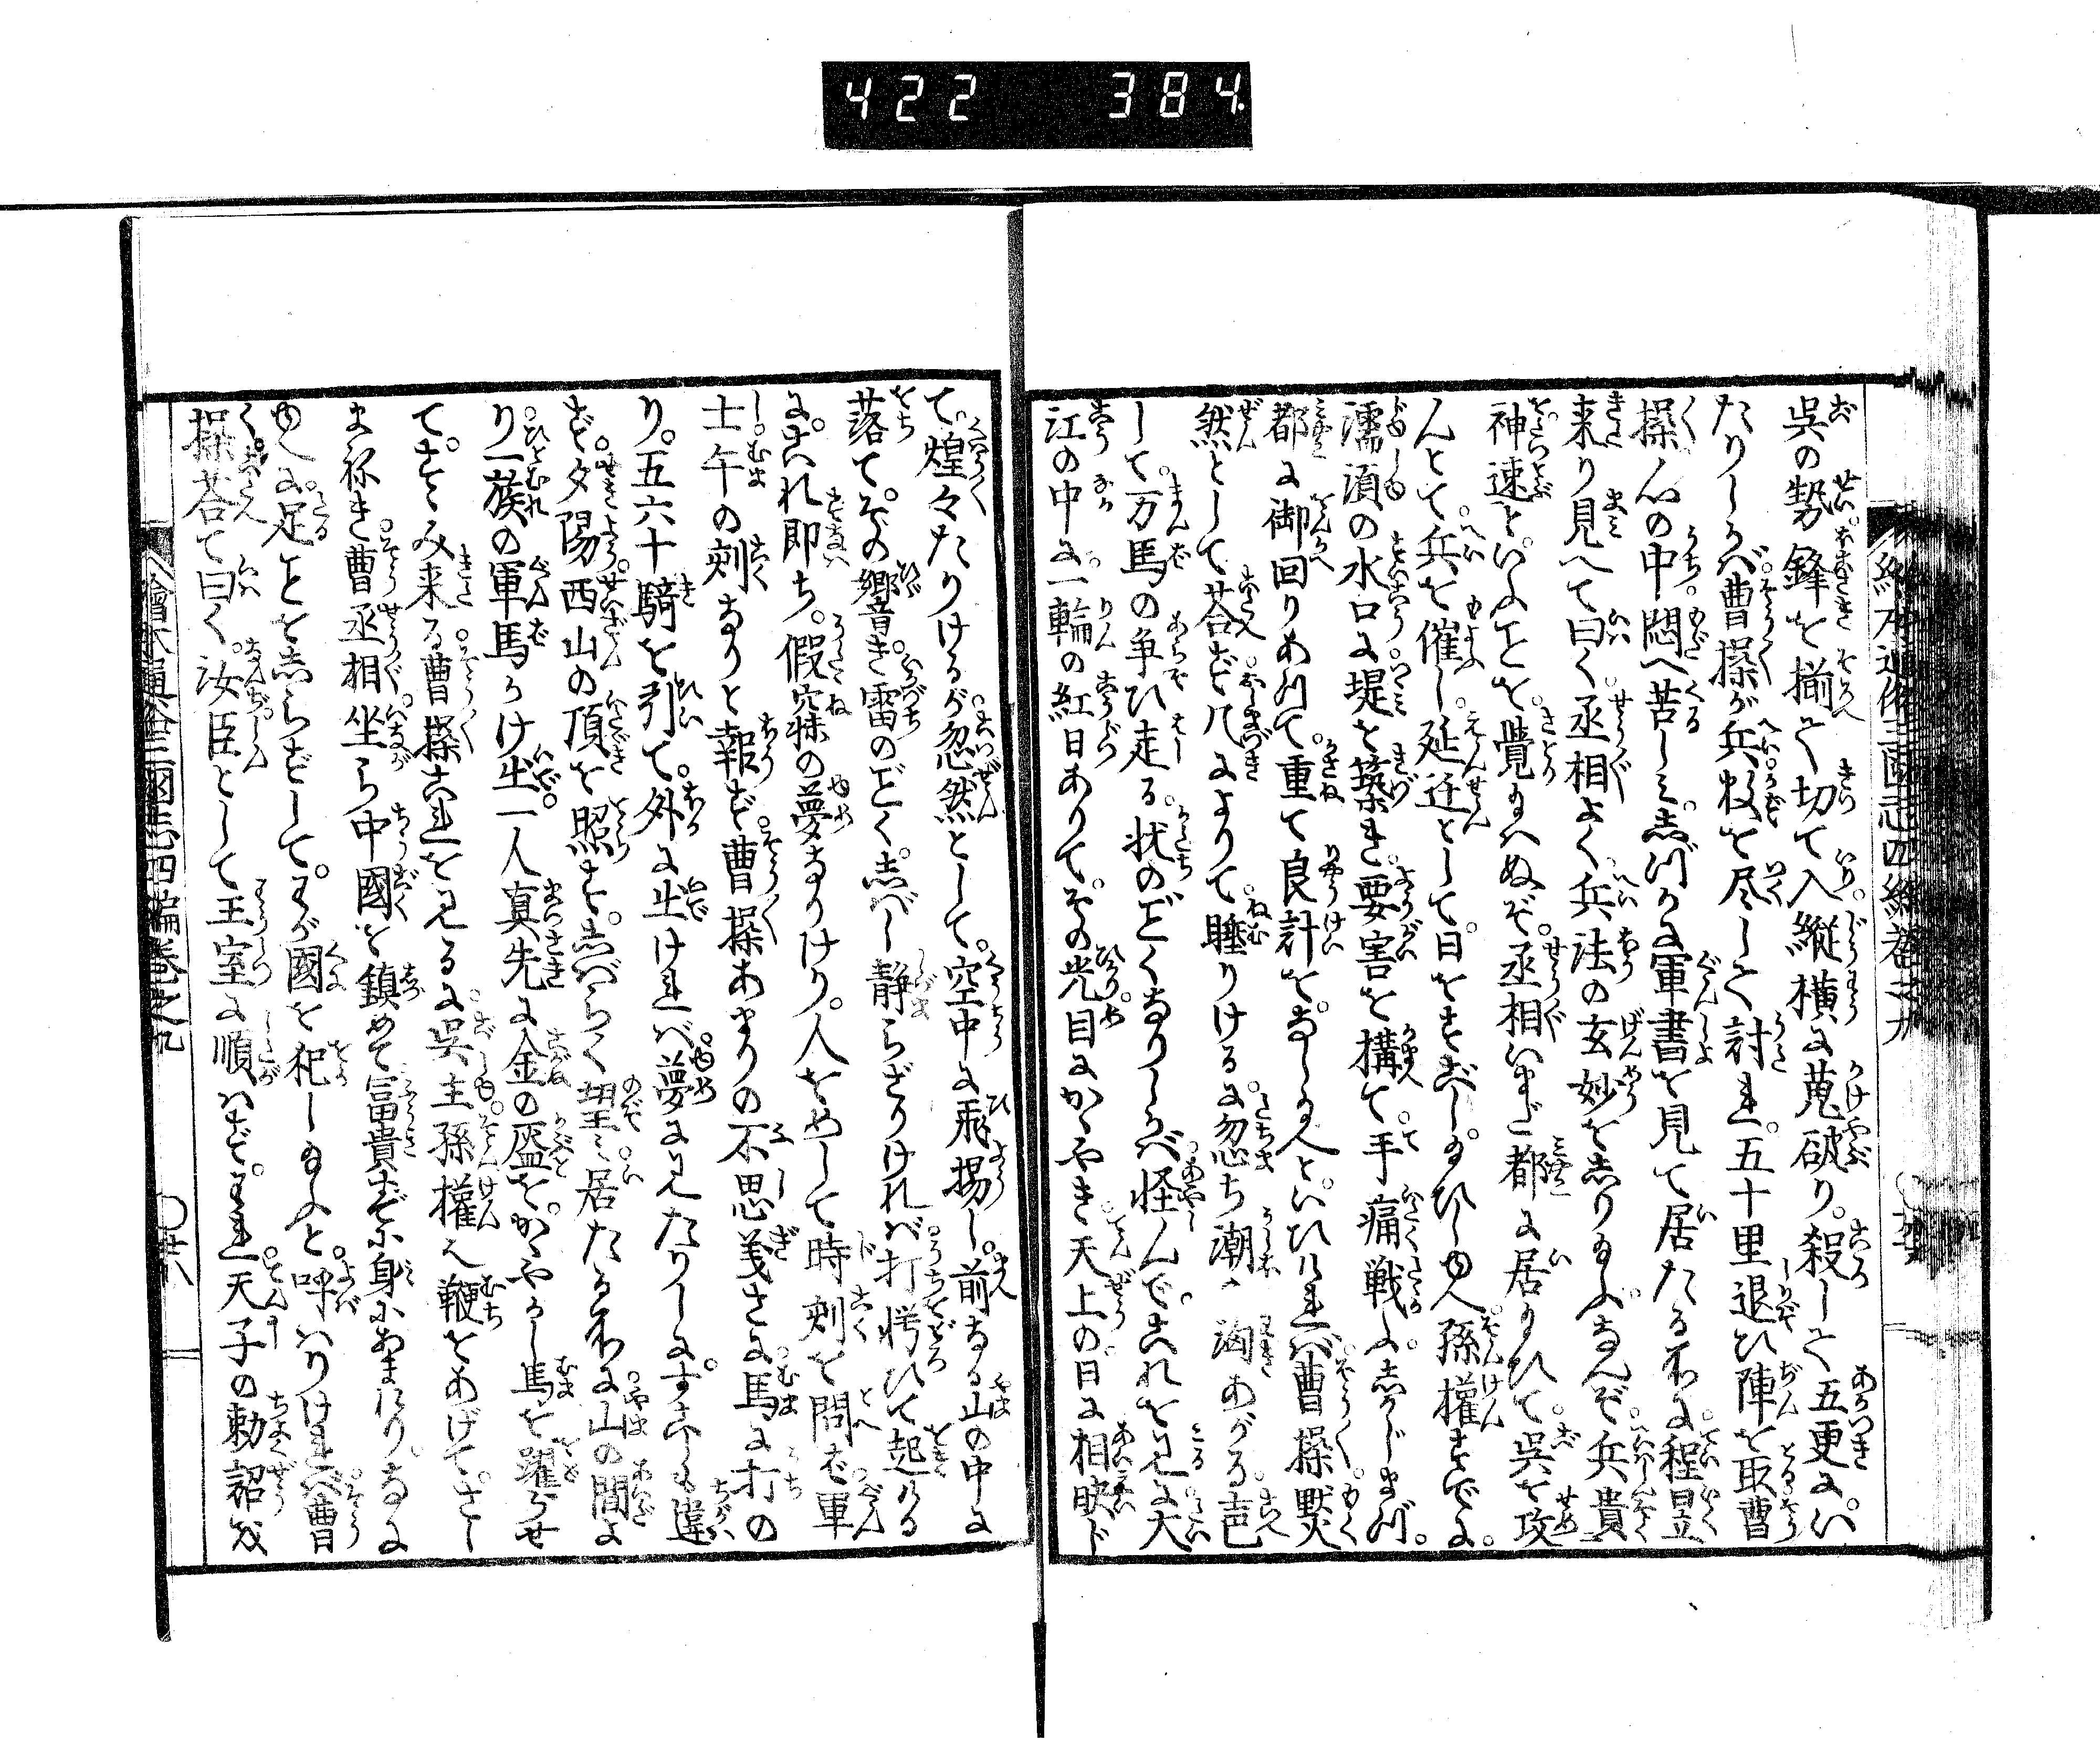 422 384
呉の勢鋒を揃て切て入縦横に蒐破り。殺して五更に。い
たりしかば曹操が兵数を尽して討れ。五十里退ひ陣を取曹
操心の中悶へ苦しミ志づかに軍書を見て居たる所に程昱
来り見へて曰く丞相よく兵法の玄妙を志り給ふ。なんぞ兵貴
神速といふことを。覚給へぬぞ。丞相いまだ都に居給ひて呉を攻
んとて兵を催し。延迂として。日をすごし給ひしゆへ孫権すでに。
濡須の水口に堤を築き要害を構て。手痛戦ふ。志かじまづ。
都に御回りあつて。重て良計を。なし給へといひければ曹操黙
然として荅ず几によりて睡りけるに忽ち潮〻洶あがる声
して万馬の争ひ走る。状のごくなりしかば怪んで。これを見に大
江の中に一輪の紅日ありて。その光目にかゞやき天上の日に相映ド
て煌々たりけるが忽然として。空中に飛揚し。前なる山の中に
落て。その響き雷のごく志ばし静らざりければ打愕ひて起ける
に。これ即ち。假寐の夢なりけり。人をめして時刻を問ば軍
士午の刻なりと報ず曹操あまりの不思義さに馬に打の
り。五六十騎を引て外に出ければ夢に見たりしにすこしも違
ず。夕陽西山の頂を照す志ばらく望ミ居たる所に山の間よ
り一簇の軍馬かけ出一人真先に金の盔を。かゞやかし馬を躍らせ
てすゝみ来る曹操これを見るに呉主孫権也鞭をあげて。さし
まねき曹丞相坐ら中國を鎮めて冨貴すでに身にあまれり。なに
ゆへに足ことを志らずして。わが國を犯し給ふと呼はりければ曹
操荅て曰く汝臣として王室に順はず。われ天子の勅詔を
繪本通俗三國志四編巻之九